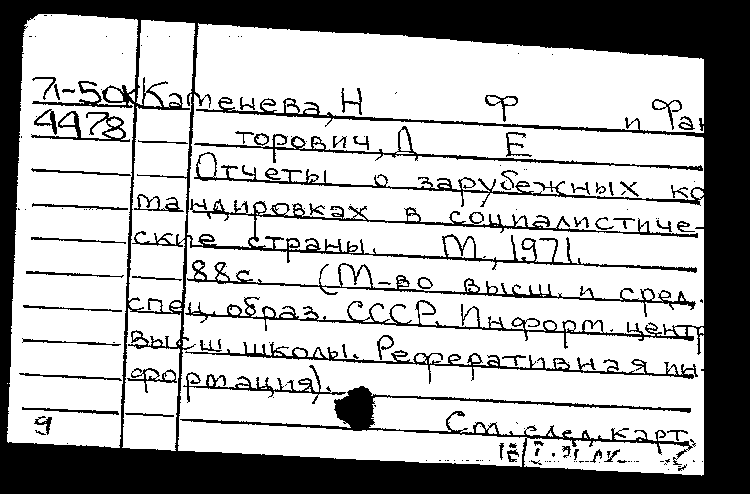 Л-50К Каменева, Н Ф и Фан
4478
торович, Д Е
Отчеты о зарубежных ко
мандировках в социалистиче-
ские страны. М., 1971.
88с. (М-во высш. и сред.
спец. образ. СССР. Информ. центр
высш. школы. Реферативная ин-
формация).
См. след. карт.
9